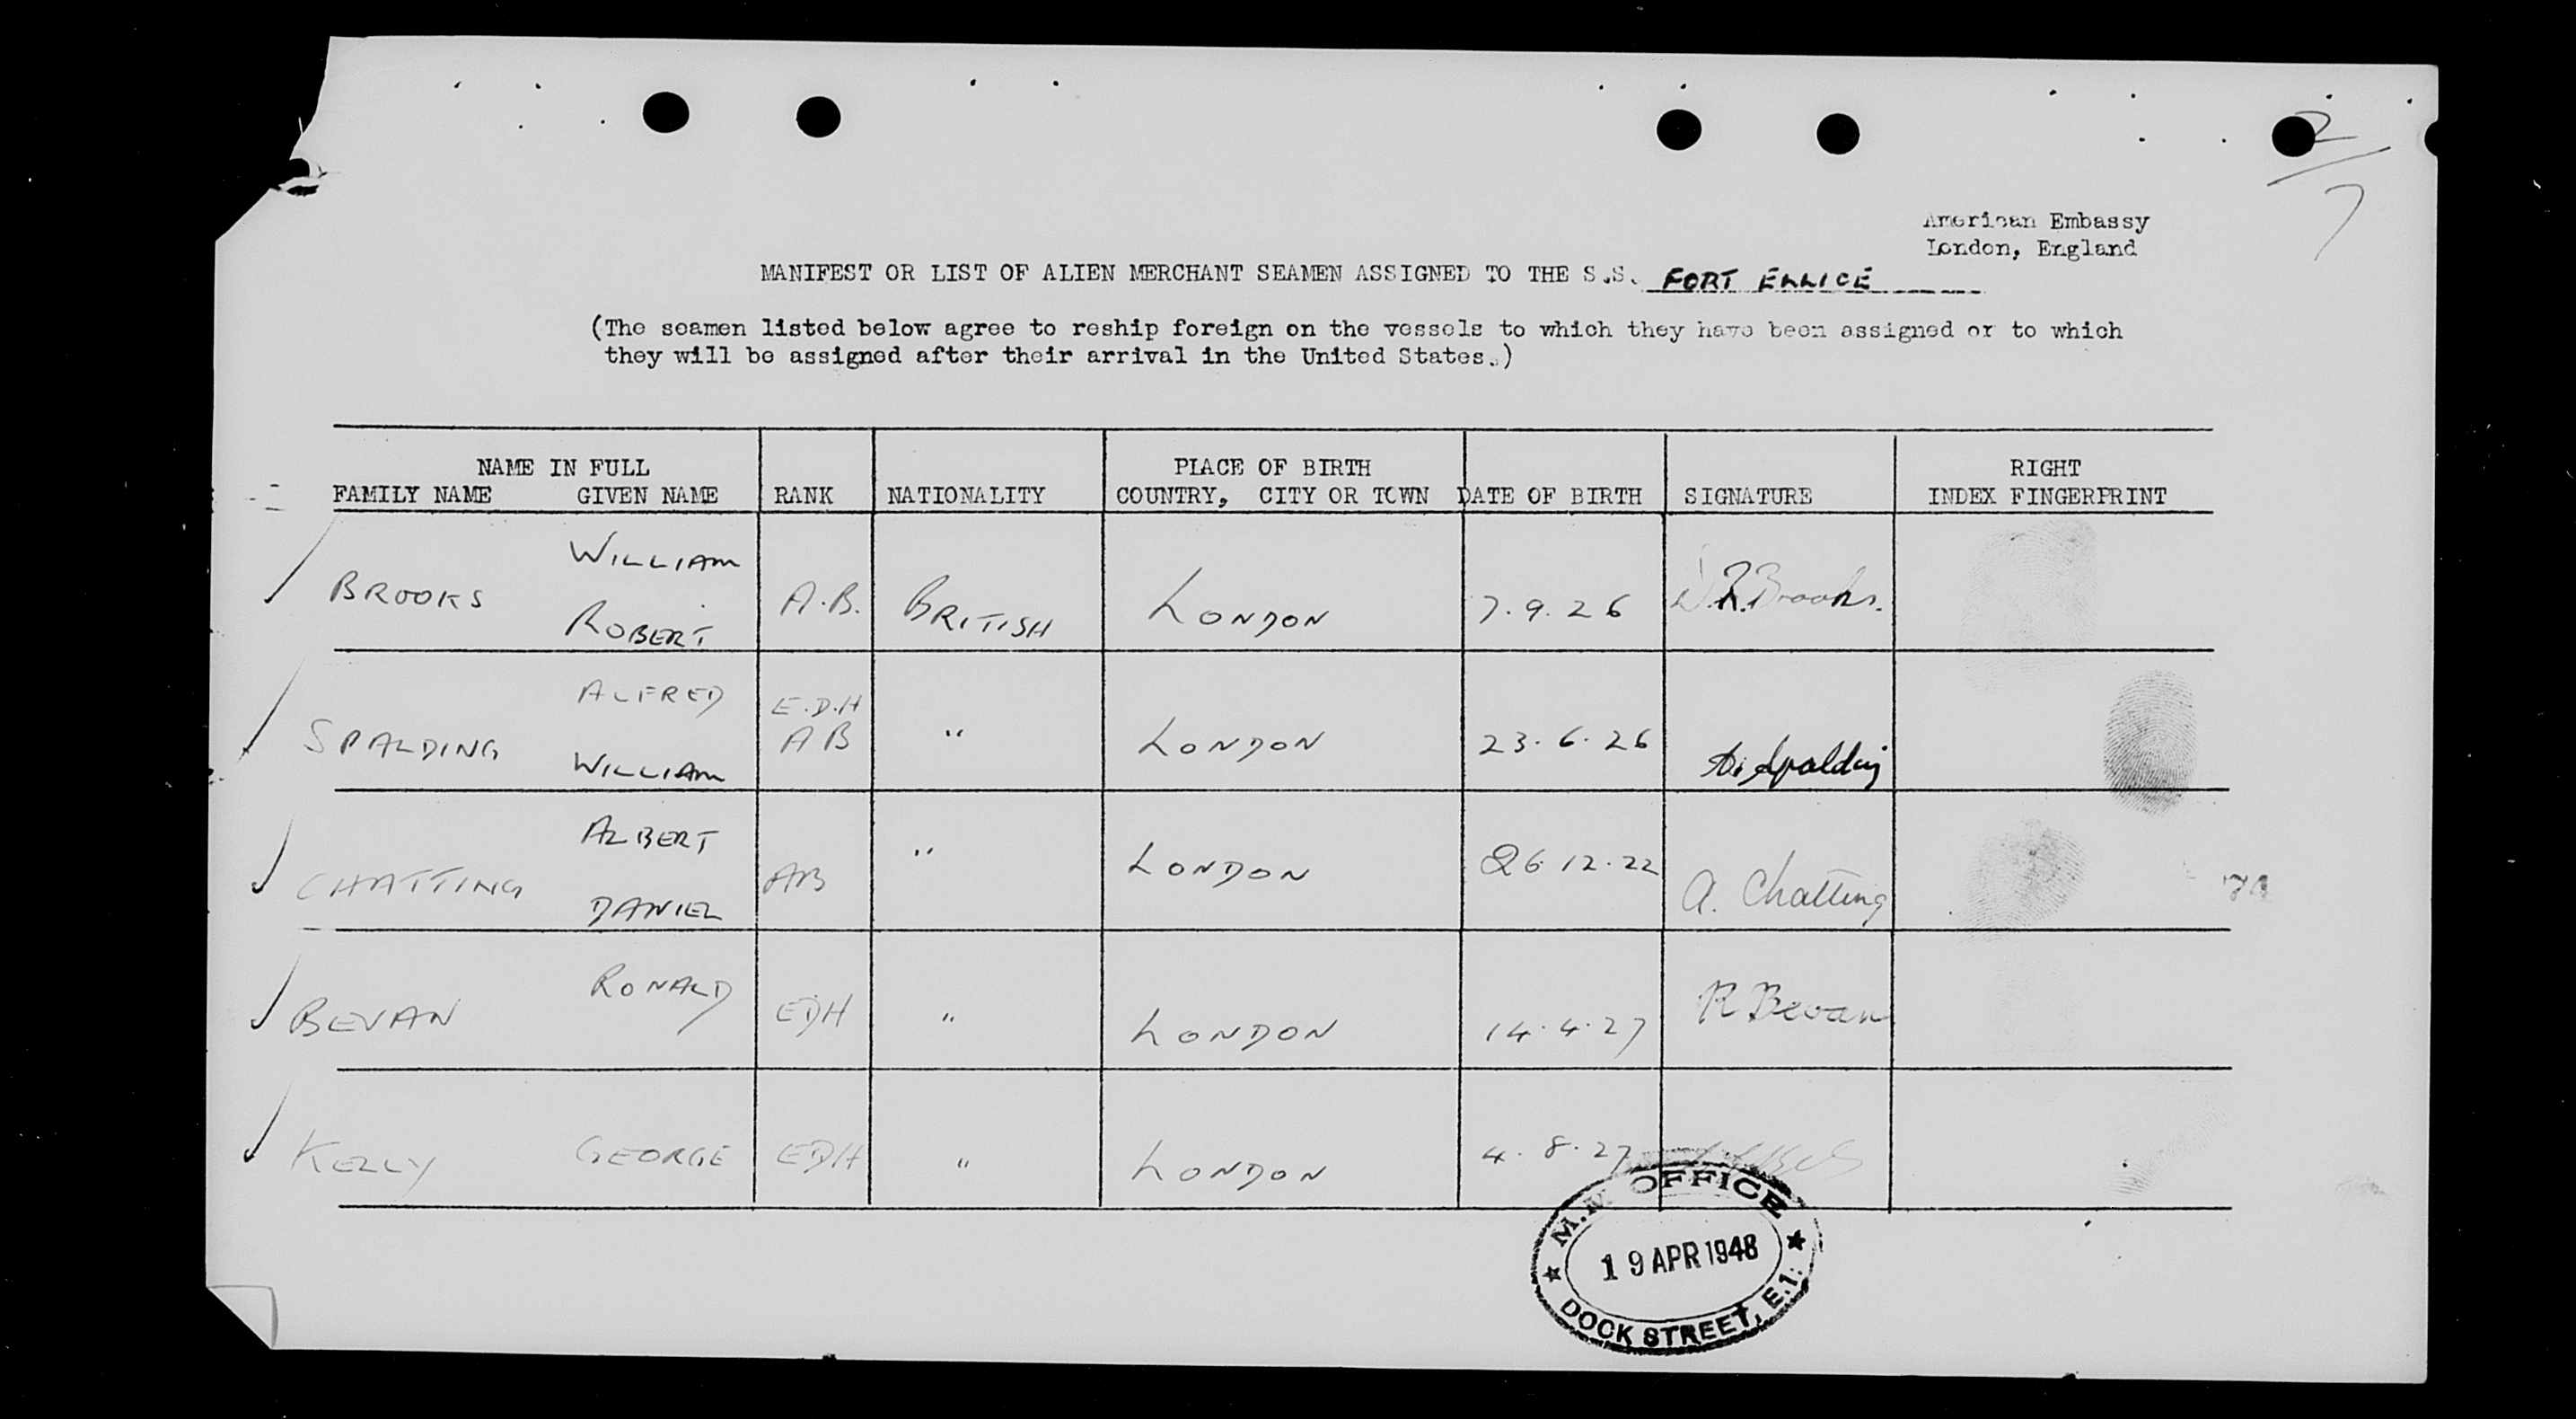 2/7
American Embassy
London, England
MANIFEST OR LIST OF ALIEN MERCHANT SEAMEN ASSIGNED TO THE S.S. FORT ELLICE
(The seamen listed below agree to reship foreign on the vessels to which they have been assigned or to which
they will be assigned after their arrival in the United States.)
NAME IN FULL PLACE OF BIRTH RIGHT
FAMILY NAME GIVEN NAME RANK NATIONALITY COUNTRY, CITY OR TOWN DATE OF BIRTH SIGNATURE INDEX FINGERPRINT
WILLIAM
BROOKS A.B. BRITISH LONDON 7.9.26 W.R.Brooks.
ROBERT
ALFRED E.D.H
SPALDING AB " LONDON 23.6.26 Spalding
WILLIAM
ALBERT
CHATTING AB " LONDON 26 12.22 A. Chatting
DANIEL
RONALD
BEVAN EDH " LONDON 14.4.27 R Bevan
KELLY GEORGE EDH " LONDON 4.8.27
OFFICE
19 APR 1948
DOCK STREET, E.1.